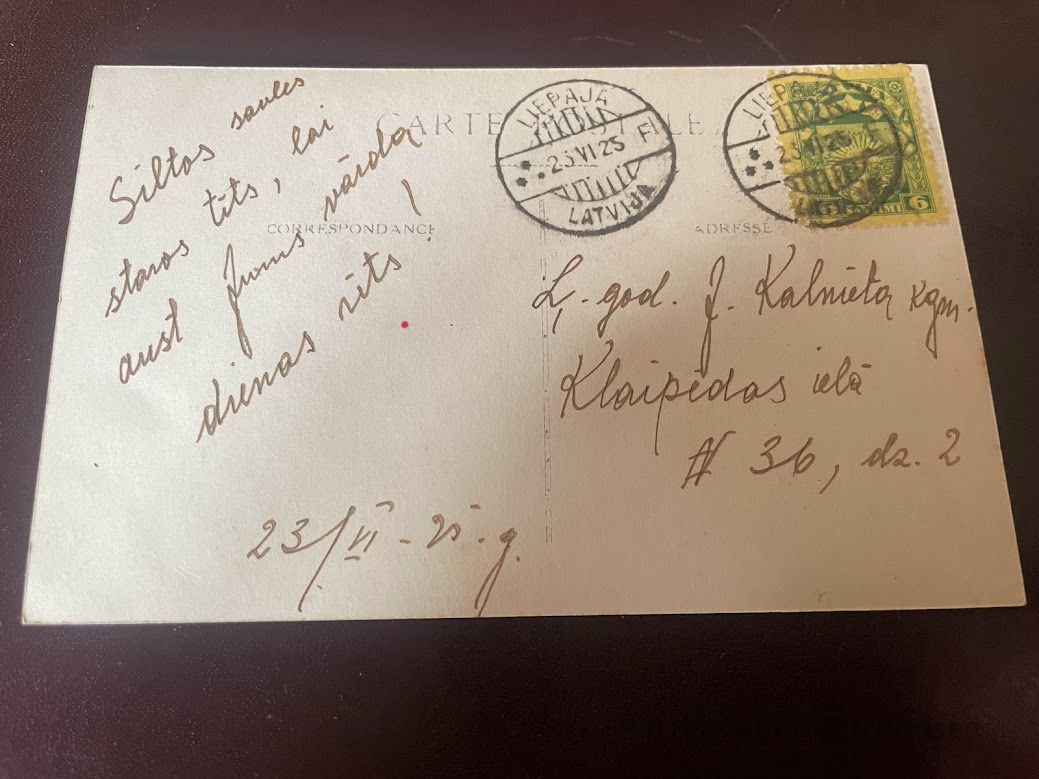 CARTE POSTALE
CORRESPONDANCE
ADRESSE
Siltos saules
staros tīts, lai
aust Jums vārda
dienas rīts!
23/VI - 25. g.
LIEPAJA
23 VI 25
LATVIJA
LIEPAJA
23 VI 25
6 SANTIMI 6
Ļ. god. J. Kalnieta kgm.
Klaipēdas ielā
N 36, dz. 2
BALTARS AUCTION HOUSE